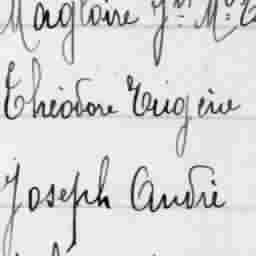 Magloire Jn. Mc.
Théodore Eugène
Joseph André